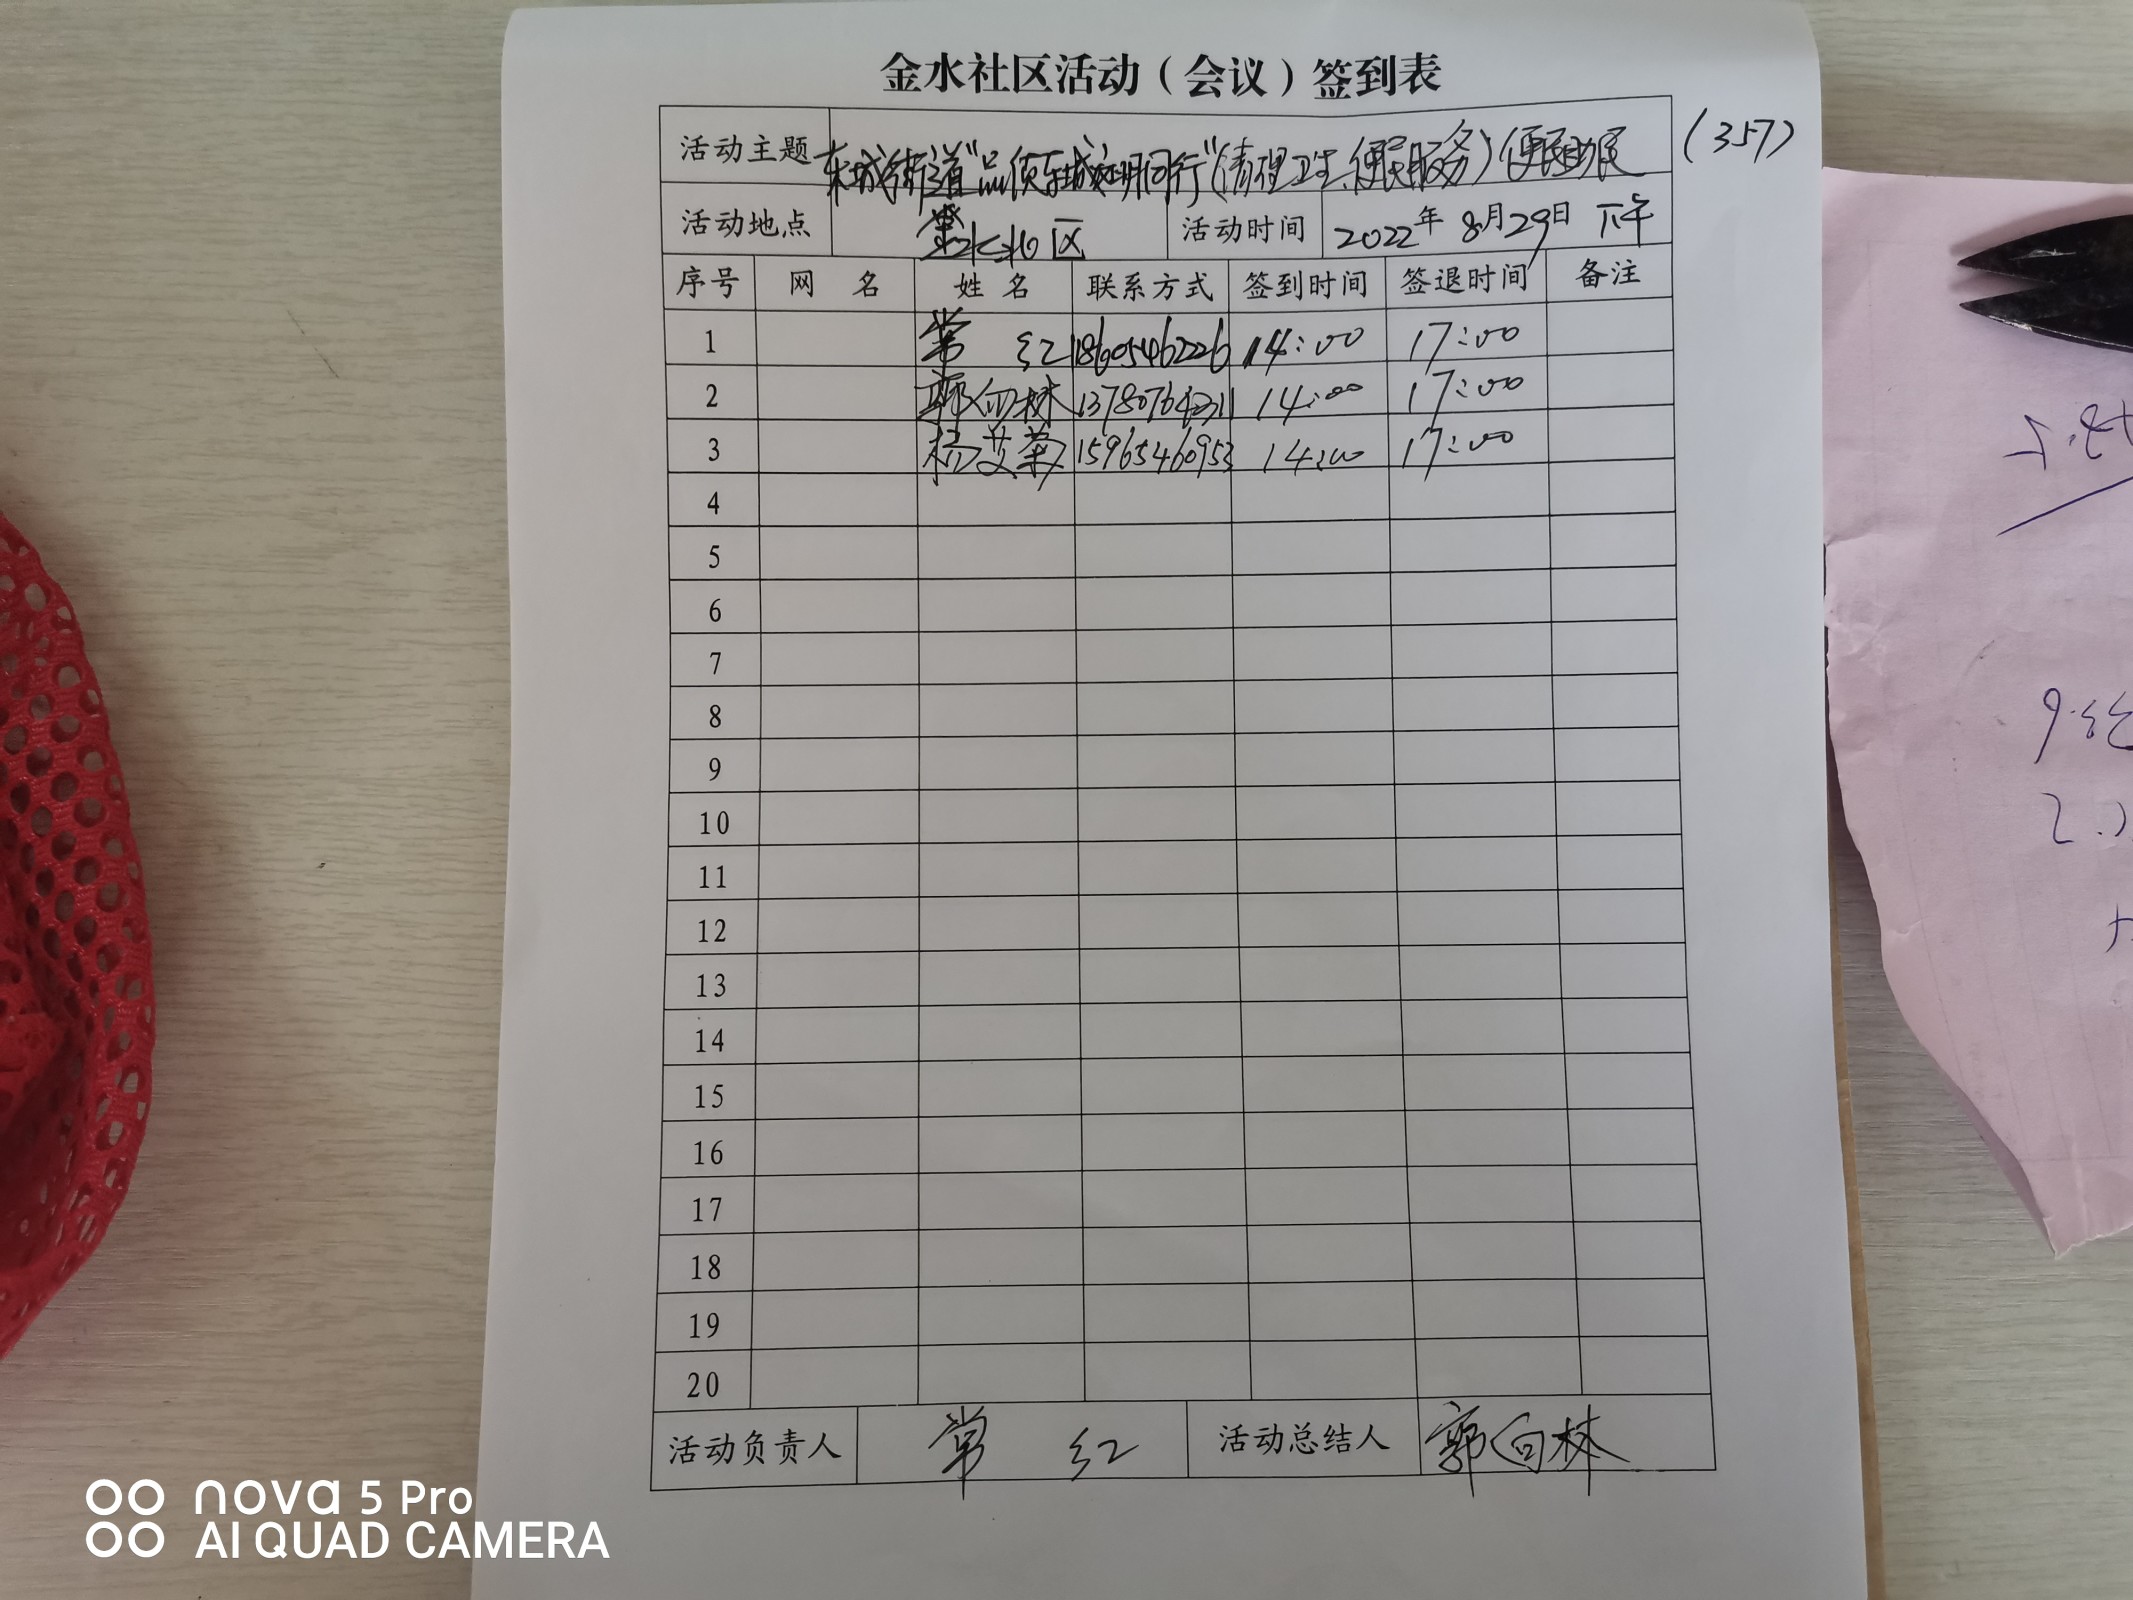 金水社区活动（会议）签到表
活动主题 东城街道"品质东城文明同行"(清理卫生、便民服务)便民助民 (357)
活动地点 金水北区 活动时间 2022年8月29日 下午
序号 网 名 姓 名 联系方式 签到时间 签退时间 备注
1 常 红 18605462226 14:00 17:00
2 郭向林 14:00 17:00
3 杨艾菊 15965460953 14:00 17:00
4
5
6
7
8
9
10
11
12
13
14
15
16
17
18
19
20
活动负责人 常 红 活动总结人 郭向林
nova 5 Pro
AI QUAD CAMERA